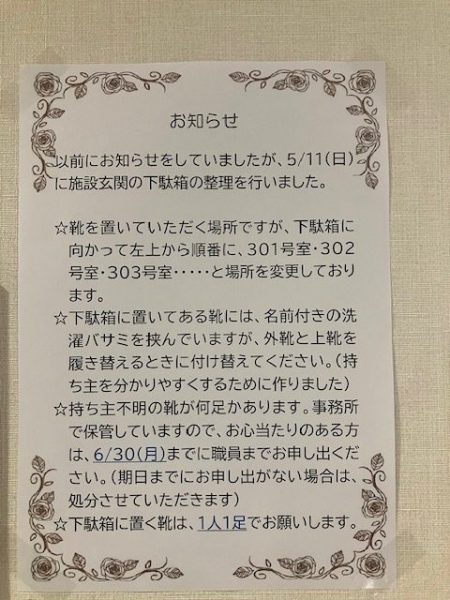 お知らせ
以前にお知らせをしていましたが、5/11(日)
に施設玄関の下駄箱の整理を行いました。
☆靴を置いていただく場所ですが、下駄箱に
向かって左上から順番に、301号室・302
号室・303号室・・・・・と場所を変更しており
ます。
☆下駄箱に置いてある靴には、名前付きの洗
濯バサミを挟んでいますが、外靴と上靴を
履き替えるときに付け替えてください。(持
ち主を分かりやすくするために作りました)
☆持ち主不明の靴が何足かあります。事務所
で保管していますので、お心当たりのある方
は、6/30(月)までに職員までお申し出くだ
さい。(期日までにお申し出がない場合は、
処分させていただきます)
☆下駄箱に置く靴は、1人1足でお願いします。